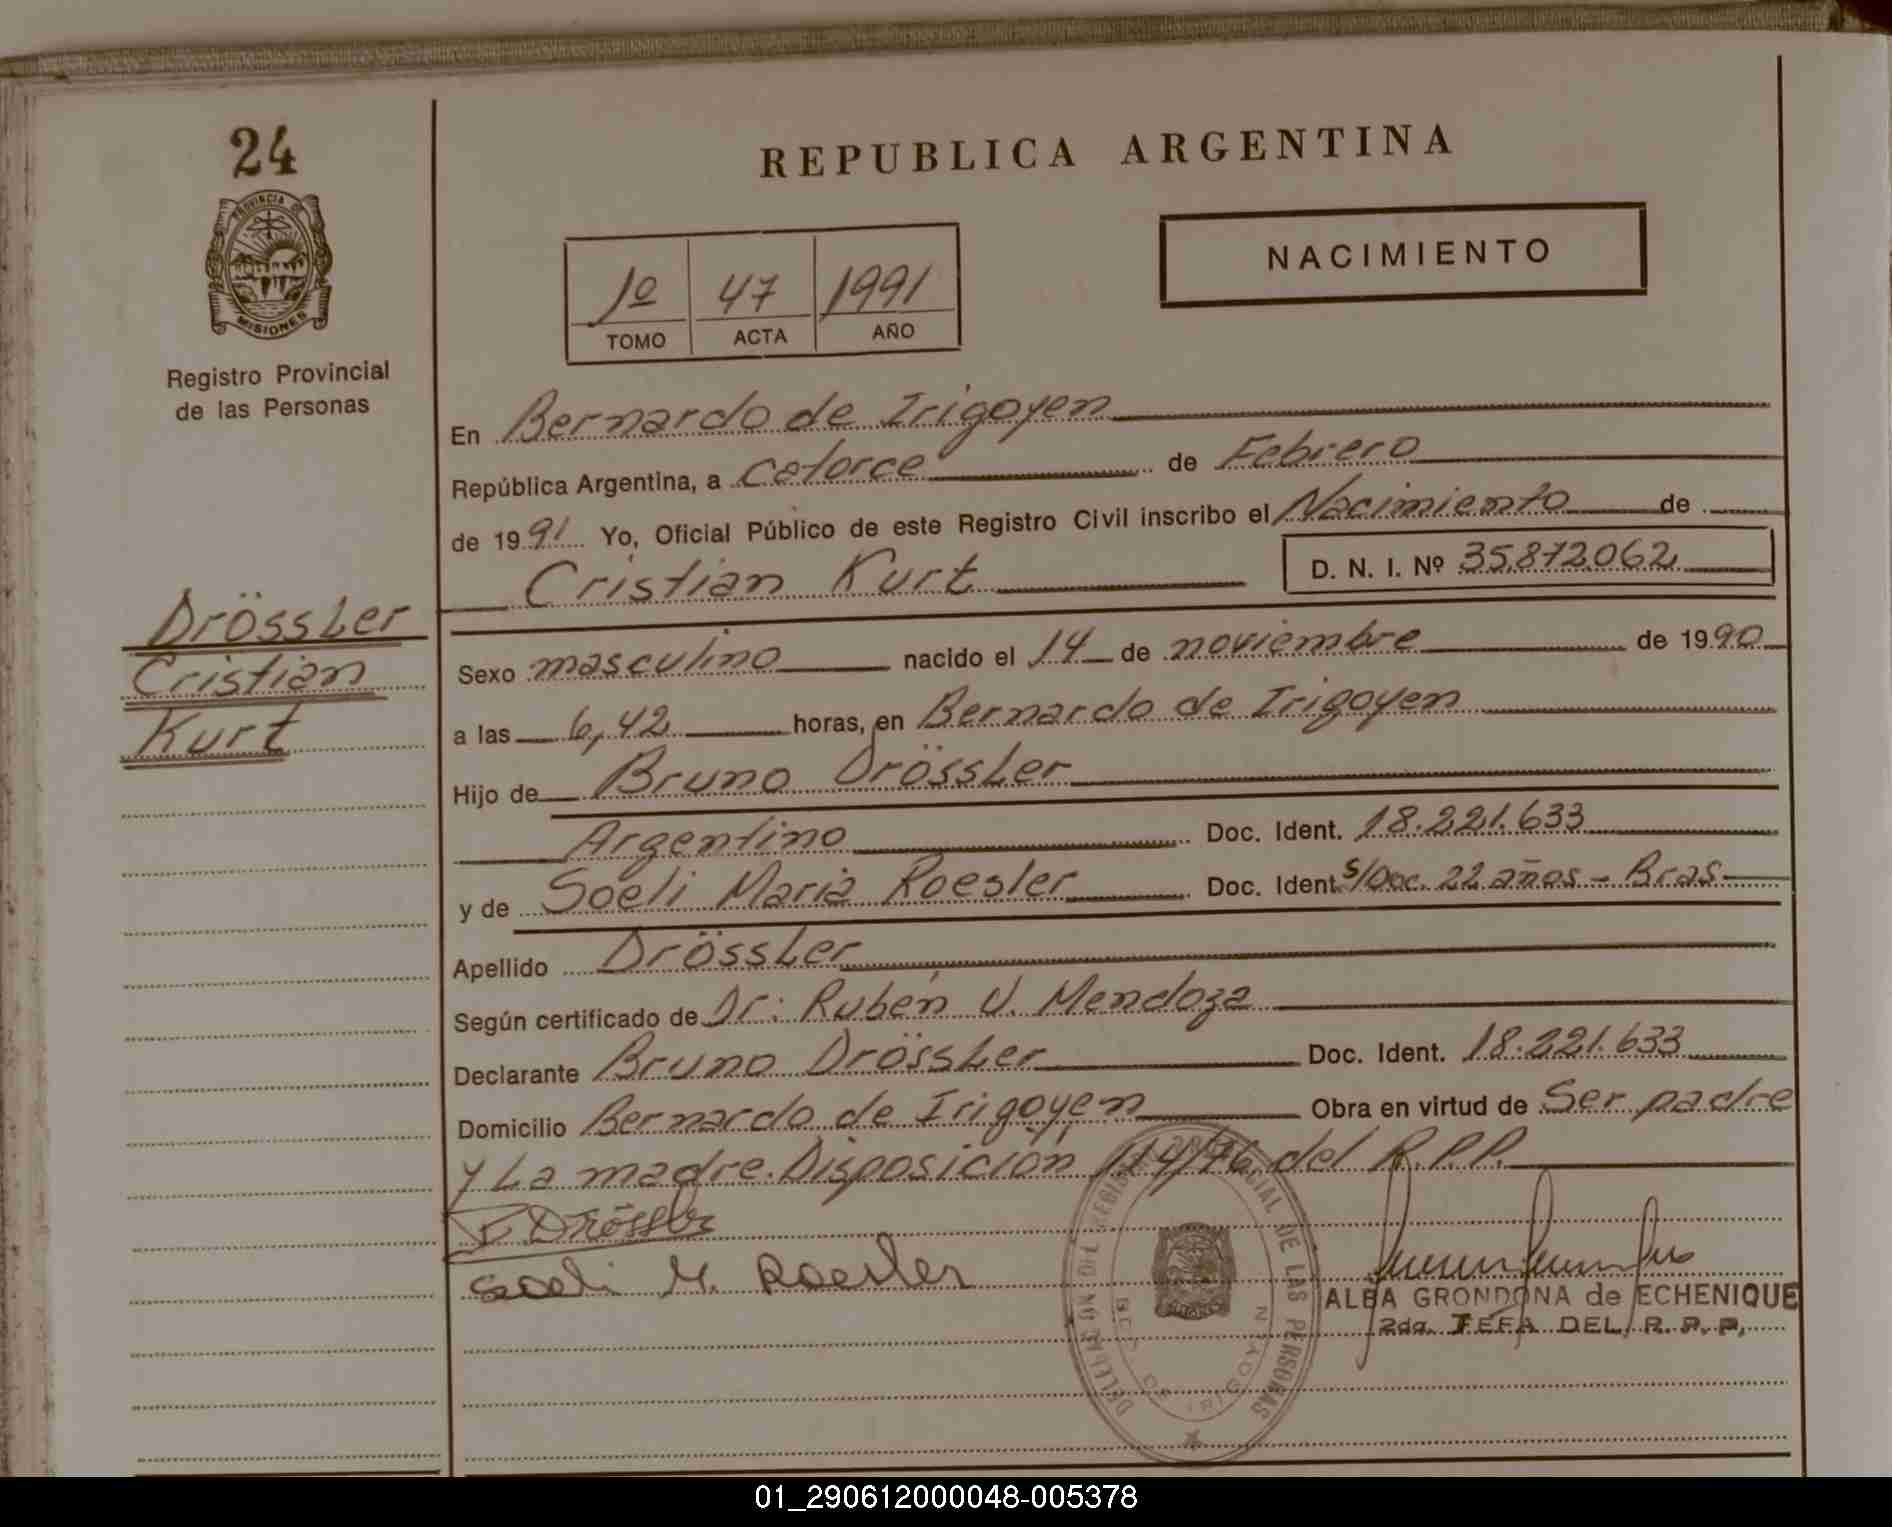 24
REPUBLICA ARGENTINA
PROVINCIA DE
MISIONES
NACIMIENTO
1º 47 1991
TOMO ACTA AÑO
Registro Provincial
de las Personas
En Bernardo de Irigoyen
República Argentina, a catorce de Febrero
de 1991 Yo, Oficial Público de este Registro Civil inscribo el Nacimiento de
Cristian Kurt D. N. I. Nº 35.872.062
Drössler
Cristian
Kurt
Sexo masculino nacido el 14 de noviembre de 1990
a las 6,42 horas, en Bernardo de Irigoyen
Hijo de Bruno Drössler
Argentino Doc. Ident. 18.221.633
y de Soeli Maria Roesler Doc. Ident. S/Doc. 22 años - Bras
Apellido Drössler
Según certificado de Dr: Rubén V. Mendoza
Declarante Bruno Drössler Doc. Ident. 18.221.633
Domicilio Bernardo de Irigoyen Obra en virtud de Ser padre
y La madre. Disposición 114/76 del R.P.P.
B Drössler
Soeli M. Roesler
ALBA GRONDONA de ECHENIQUE
2da. JEFA DEL R. P. P.
01_290612000048-005378